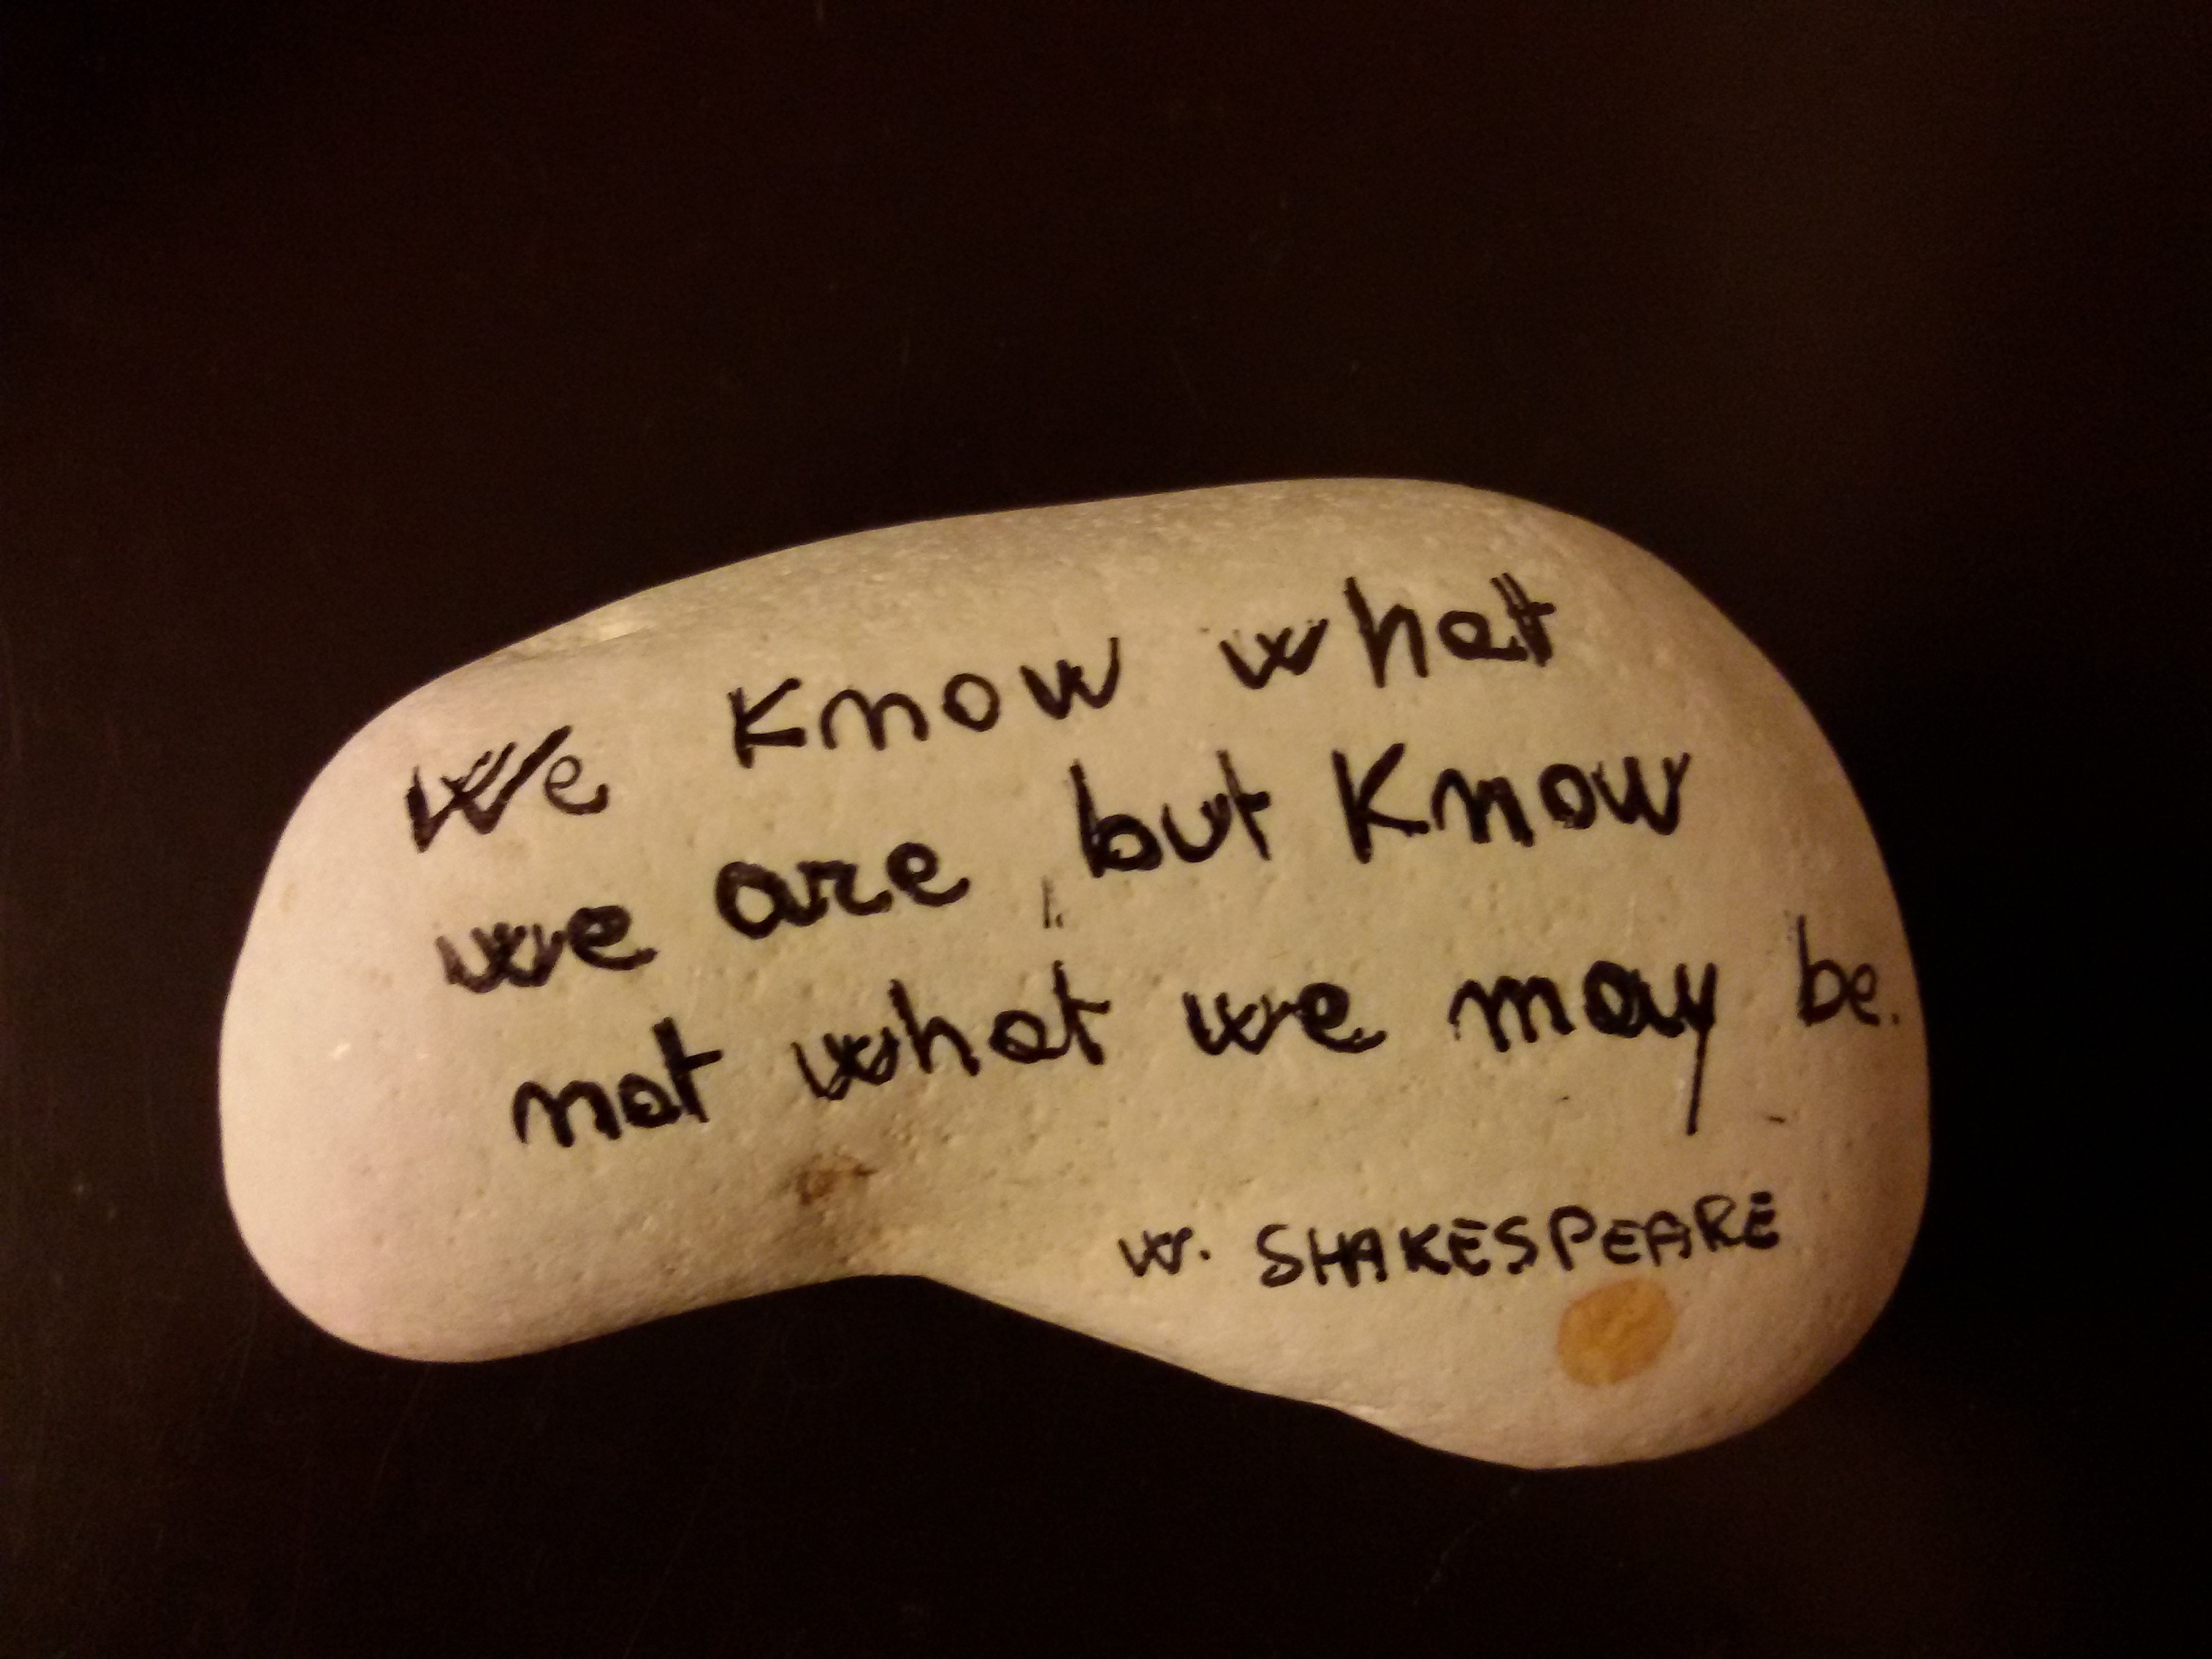 We know what
we are, but know
not what we may be.
W. SHAKESPEARE